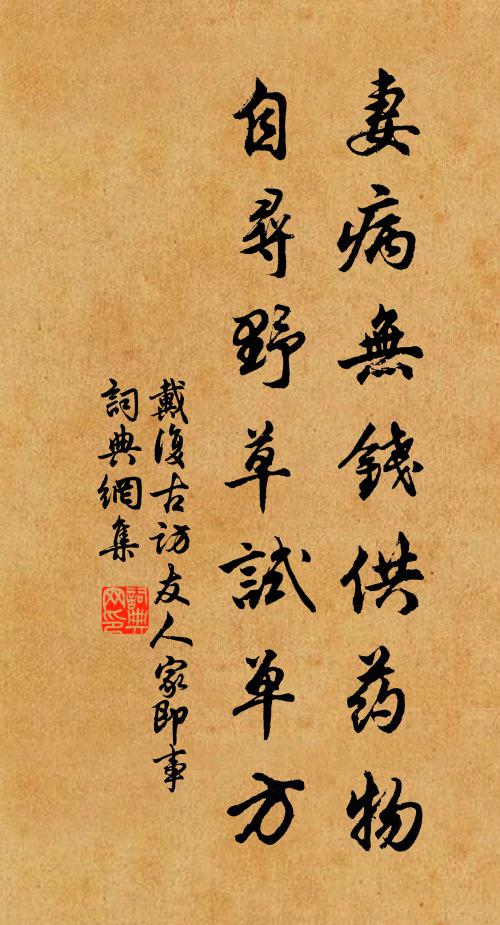 妻病無錢供药物
自尋野草試单方
戴復古訪友人家即事
詞典網集
詞典网印